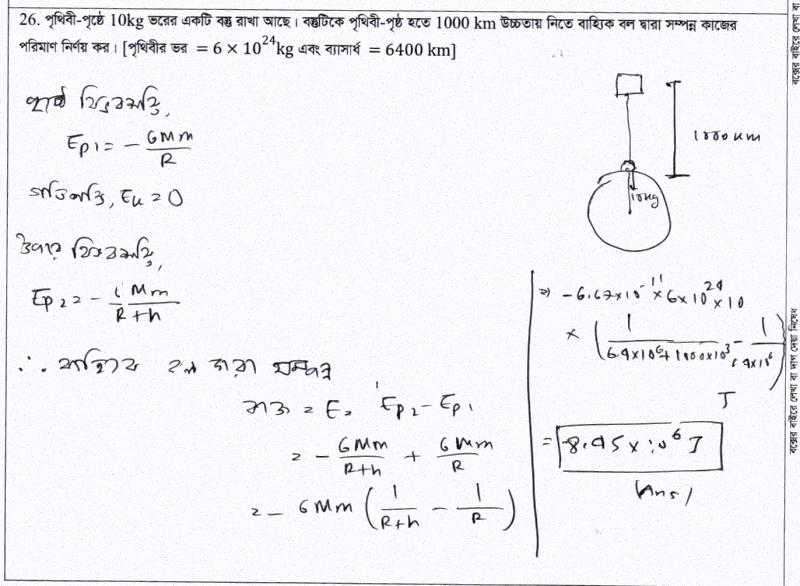 26. পৃথিবী-পৃষ্ঠে 10kg ভরের একটি বস্তু রাখা আছে। বস্তুটিকে পৃথিবী-পৃষ্ঠ হতে 1000 km উচ্চতায় নিতে বাহ্যিক বল দ্বারা সম্পন্ন কাজের
পরিমাণ নির্ণয় কর। [পৃথিবীর ভর = 6 × 10^24 kg এবং ব্যাসার্ধ = 6400 km]
বিভবশক্তি,
Ep1 = - GMm/R
গতিশক্তি, Ek = 0
উপরে বিভবশক্তি,
Ep2 = - GMm/R+h
∴ বাহ্যিক বল দ্বারা সম্পন্ন
কাজ = E = Ep2 - Ep1
= - GMm/R+h + GMm/R
= - GMm (1/R+h - 1/R)
1000 km
10kg
⇒ -6.67×10^-11 × 6×10^24 × 10
× (1/6.4×10^6+1000×10^3 - 1/6.4×10^6)
J
= 8.45 × 10^6 J
(Ans)
বক্সের বাইরে লেখা বা
বক্সের বাইরে লেখা বা দাগ দেয়া নিষেধ